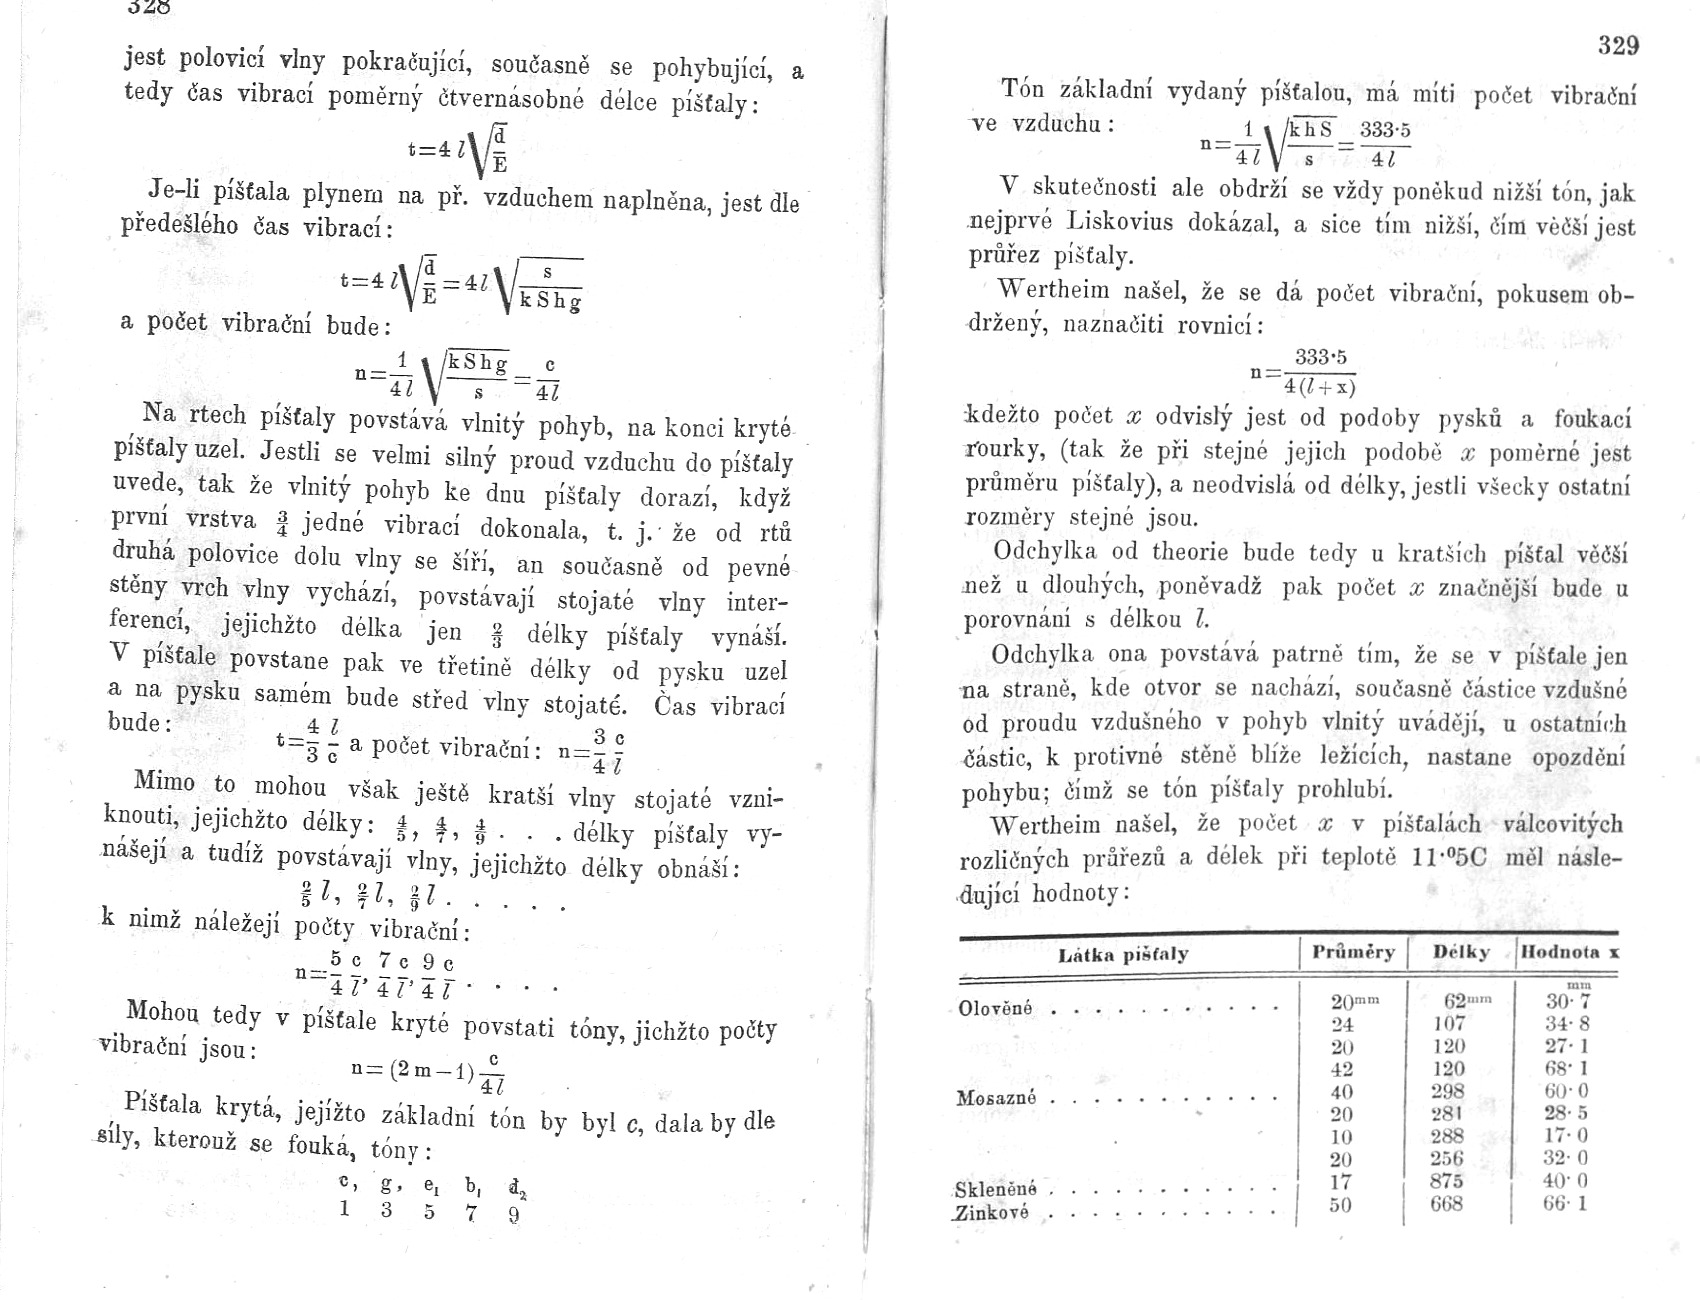 328
jest polovicí vlny pokračující, současně se pohybující, a
tedy čas vibrací poměrný čtvernásobné délce píšťaly:
t=4 l√(d/E)
Je-li píšťala plynem na př. vzduchem naplněna, jest dle
předešlého čas vibrací:
t=4 l√(d/E) = 4 l√(s/(k S h g))
a počet vibrační bude:
n = 1/(4 l) √((k S h g)/s) = c/(4 l)
Na rtech píšťaly povstává vlnitý pohyb, na konci kryté
píšťaly uzel. Jestli se velmi silný proud vzduchu do píšťaly
uvede, tak že vlnitý pohyb ke dnu píšťaly dorazí, když
první vrstva 3/4 jedné vibrací dokonala, t. j. že od rtů
druhá polovice dolu vlny se šíří, an současně od pevné
stěny vrch vlny vychází, povstávají stojaté vlny inter-
ferencí, jejichžto délka jen 2/3 délky píšťaly vynáší.
V píšťale povstane pak ve třetině délky od pysku uzel
a na pysku samém bude střed vlny stojaté. Čas vibrací
bude: t = 4/3 l/c a počet vibrační: n = 3/4 c/l
Mimo to mohou však ještě kratší vlny stojaté vzni-
knouti, jejichžto délky: 4/5, 4/7, 4/9 . . . délky píšťaly vy-
nášejí a tudíž povstávají vlny, jejichžto délky obnáší:
2/5 l, 2/7 l, 2/9 l . . . . .
k nimž náležejí počty vibrační:
n = 5/4 c/l, 7/4 c/l, 9/4 c/l . . . .
Mohou tedy v píšťale kryté povstati tóny, jichžto počty
vibrační jsou: n = (2 m — 1) c/(4 l)
Píšťala krytá, jejížto základní tón by byl c, dala by dle
síly, kterouž se fouká, tóny:
c, g, e₁ b, d₂
1 3 5 7 9
329
Tón základní vydaný píšťalou, má míti počet vibrační
ve vzduchu: n = 1/(4 l) √((k h S)/s) = 333·5/(4 l)
V skutečnosti ale obdrží se vždy poněkud nižší tón, jak
nejprvé Liskovius dokázal, a sice tím nižší, čím věčší jest
průřez píšťaly.
Wertheim našel, že se dá počet vibrační, pokusem ob-
držený, naznačiti rovnicí:
n = 333·5/(4 (l + x))
kdežto počet x odvislý jest od podoby pysků a foukací
rourky, (tak že při stejné jejich podobě x poměrné jest
průměru píšťaly), a neodvislá od délky, jestli všecky ostatní
rozměry stejné jsou.
Odchylka od theorie bude tedy u kratších píšťal věčší
než u dlouhých, poněvadž pak počet x značnější bude u
porovnání s délkou l.
Odchylka ona povstává patrně tím, že se v píšťale jen
na straně, kde otvor se nachází, současně částice vzdušné
od proudu vzdušného v pohyb vlnitý uvádějí, u ostatních
částic, k protivné stěně blíže ležících, nastane opozdění
pohybu; čímž se tón píšťaly prohlubí.
Wertheim našel, že počet x v píšťalách válcovitých
rozličných průřezů a délek při teplotě 11·⁰5C měl násle-
dující hodnoty:
Látka píšťaly Průměry Délky Hodnota x
mm
Olověné . . . . . . . . . . . 20ᵐᵐ 62ᵐᵐ 30· 7
24 107 34· 8
20 120 27· 1
42 120 68· 1
Mosazné . . . . . . . . . . . 40 298 60· 0
20 281 28· 5
10 288 17· 0
20 256 32· 0
Skleněné . . . . . . . . . . . 17 875 40· 0
Zinkové . . . . . . . . . . . 50 668 66· 1